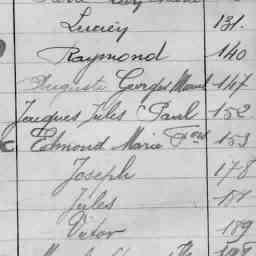 Lucien 131.
Raymond 140
Auguste Georges Marcel 147
Jacques Jules Paul 152
Edmond Marie 153
Joseph 178
Jules
Victor 189